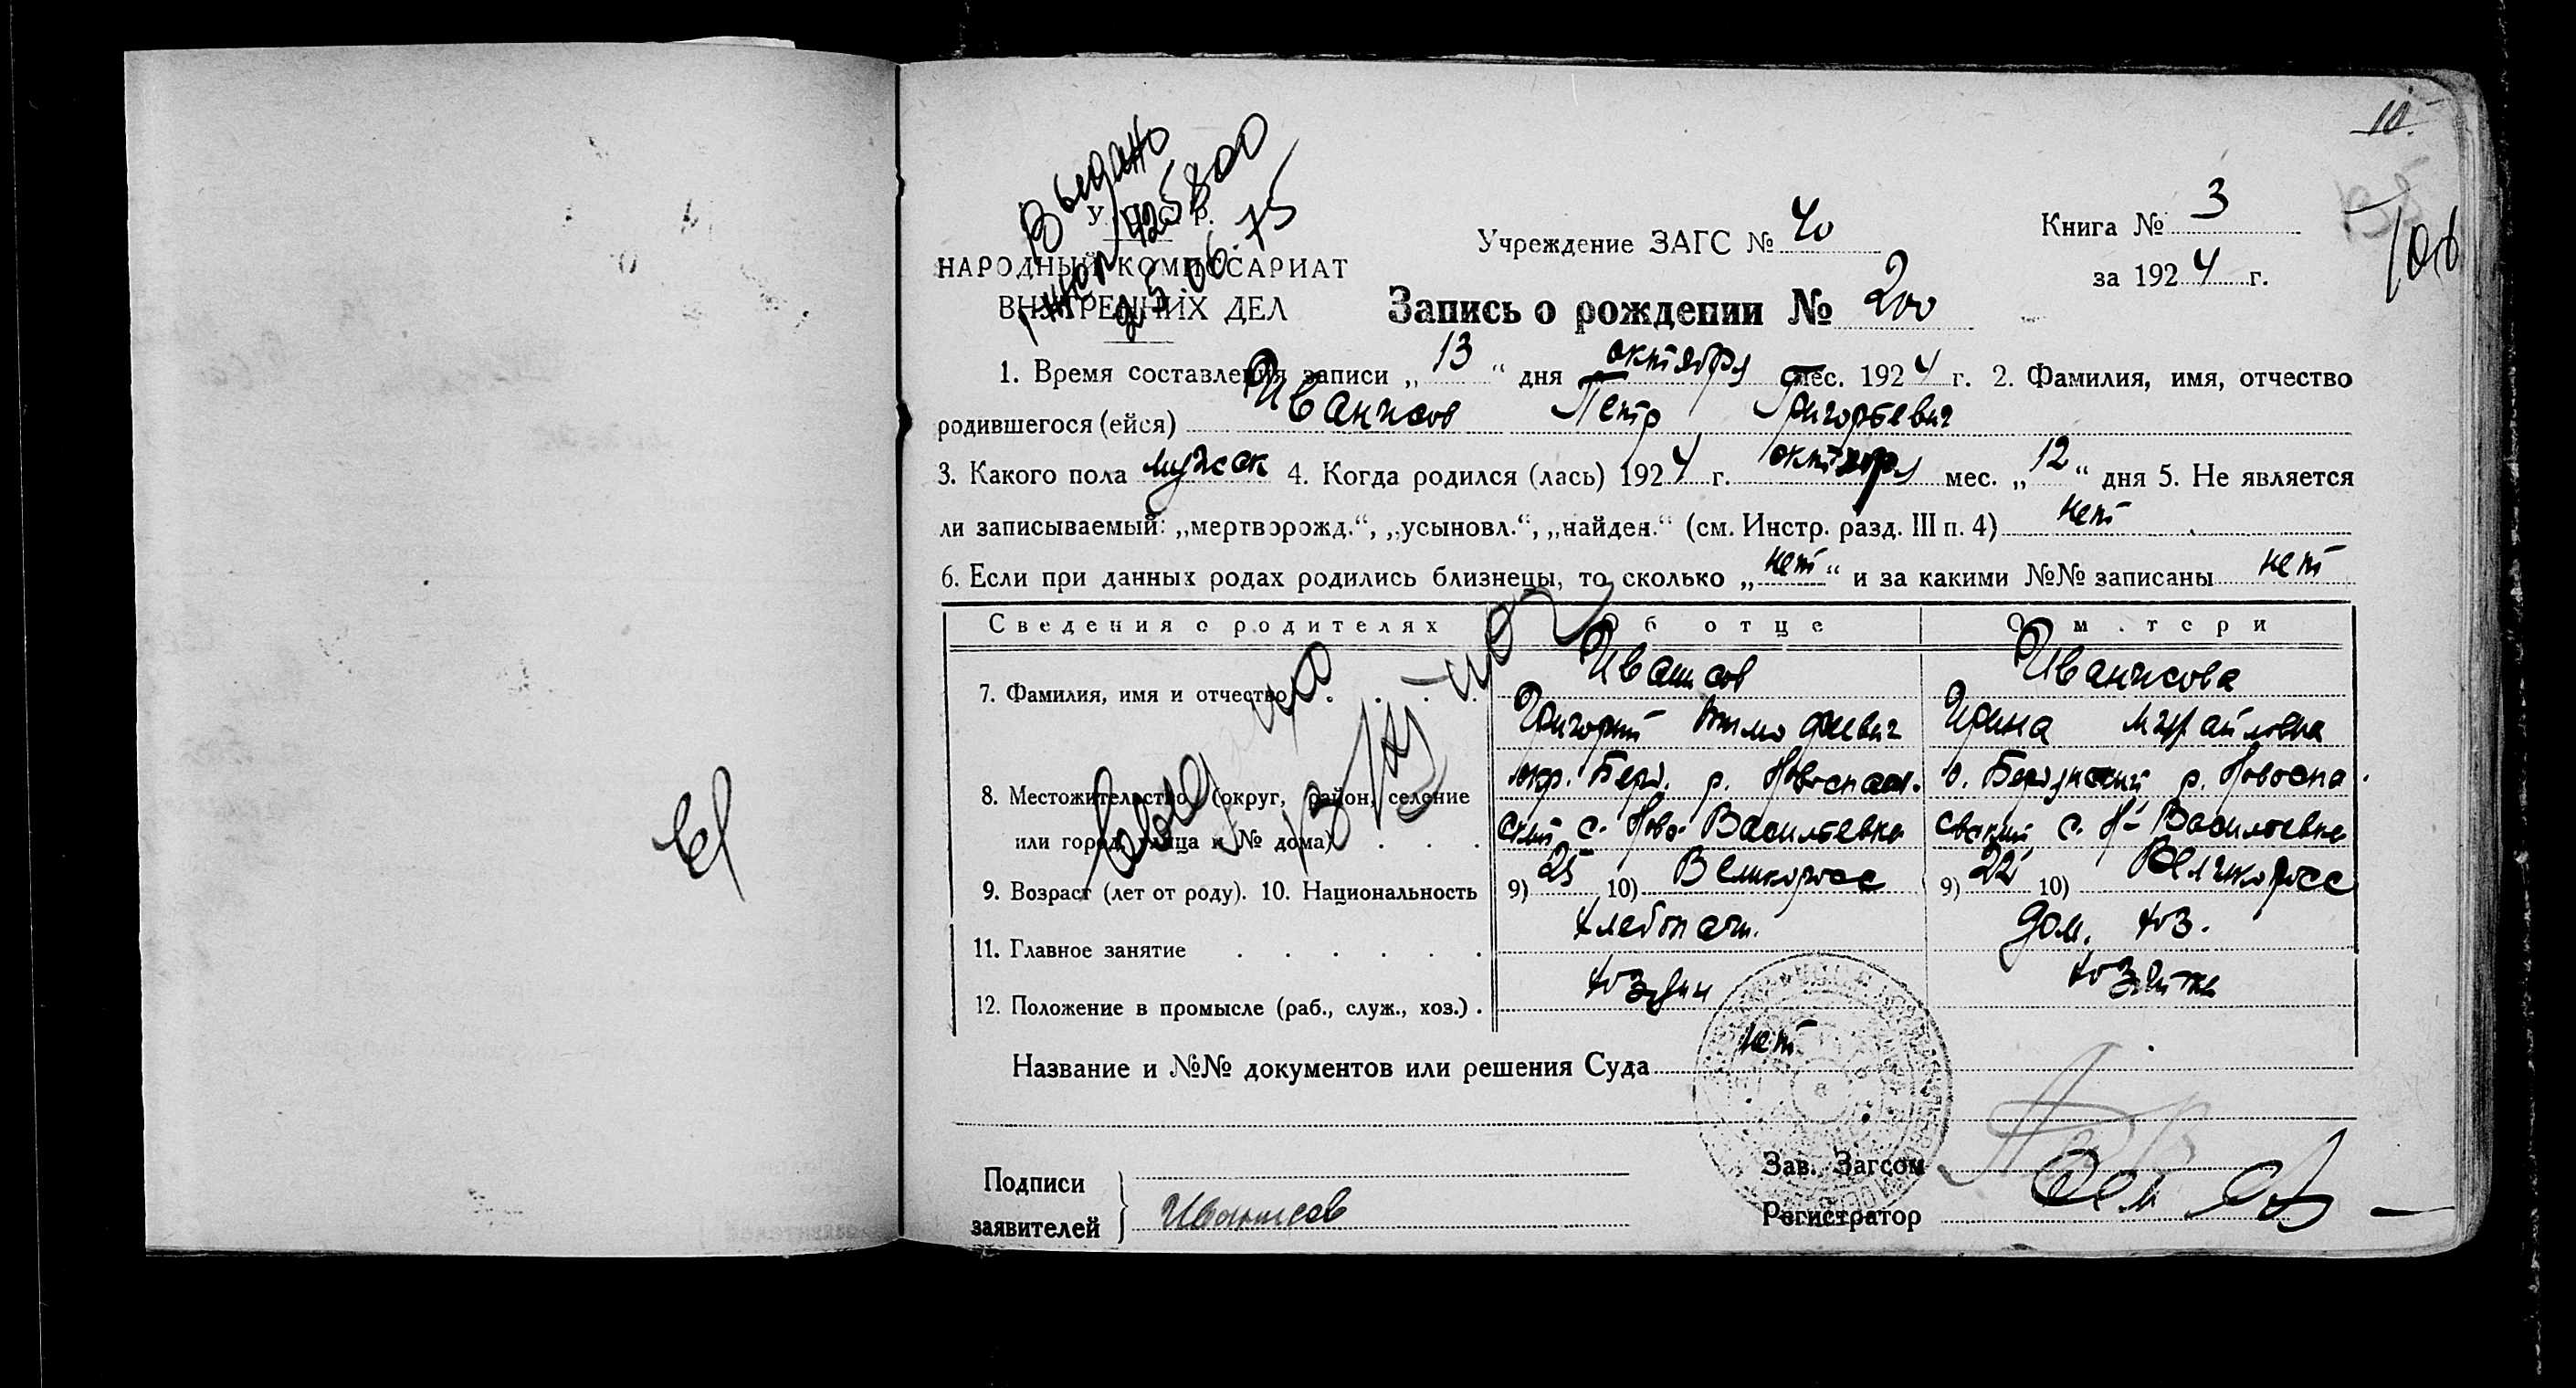 10.
Выдано
25.06.75
У. С. С. Р.
НАРОДНЫЙ КОМИССАРИАТ
ВНУТРЕННИХ ДЕЛ
Учреждение ЗАГС № 40
Книга № 3
за 1924 г.
Запись о рождении № 200
1. Время составления записи „13“ дня октября мес. 1924 г. 2. Фамилия, имя, отчество
родившегося (ейся) Иванисов Петр Григорьевич
3. Какого пола мужск 4. Когда родился (лась) 1924 г. октября мес. „12“ дня 5. Не является
ли записываемый: „мертворожд.“, „усыновл.“, „найден.“ (см. Инстр. разд. III п. 4) нет
6. Если при данных родах родились близнецы, то сколько „нет“ и за какими №№ записаны нет
Сведения о родителях Об отце О матери
7. Фамилия, имя и отчество Иванисов Иванисова
Григорий Тимофеевич Ирина Михайловна
8. Местожительство (округ, район, селение окр. Берд. р. Новоспас. о. Бердянский р. Новоспа
или город, улица и № дома) ский с. Ново-Васильевка сский с. Н-Васильевка
9. Возраст (лет от роду). 10. Национальность 9) 25 10) Великоросс 9) 22 10) Великоросс
11. Главное занятие хлебопаш. дом. хоз.
12. Положение в промысле (раб., служ., хоз.) хозяин хозяйка
Название и №№ документов или решения Суда нет
Подписи
заявителей Иванисов
Зав. Загсом
Регистратор